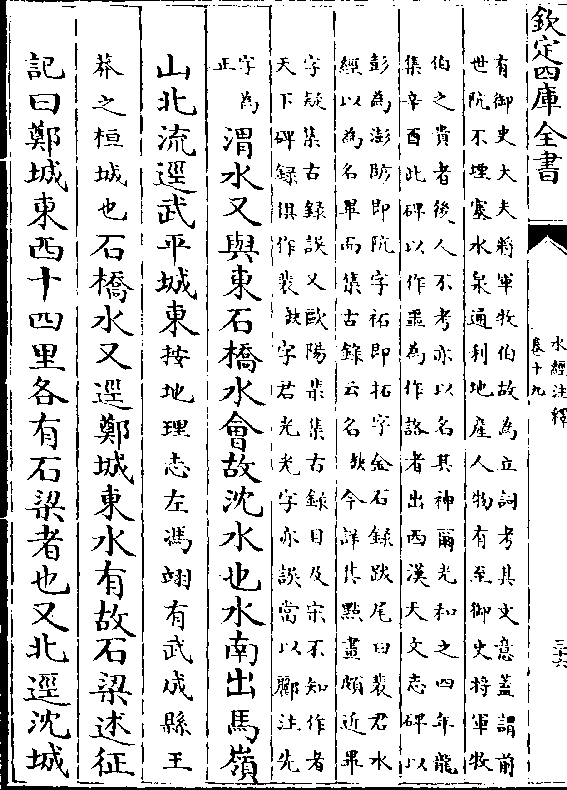 欽定四庫全書
水經注釋
卷十九
三十六
有御史大夫將軍牧伯故為立詞考其文意蓋謂前
世阬不堙塞水泉通利地產人物有至御史将軍牧
伯之貴者後人不考亦以名其神爾光和之四年龍
集辛酉此碑以作噩為作詻者出西漢天文志碑以
彭為澎肪即阬字祏即拓字金石錄跋尾曰裴君水
經以為名畢而集古錄云名缺今詳其點畫頗近畢
字疑集古錄誤又歐陽棐集古錄目及宗不知作者
天下碑錄俱作裴缺字君光光字亦誤當以酈注先
字為
正
渭水又與東石橋水會故沈水也水南出馬嶺
山北流逕武平城東按地理志左馮翊有武成縣王
莽之桓城也石橋水又逕鄭城東水有故石梁述征
記曰鄭城東西十四里各有石梁者也又北逕沈城